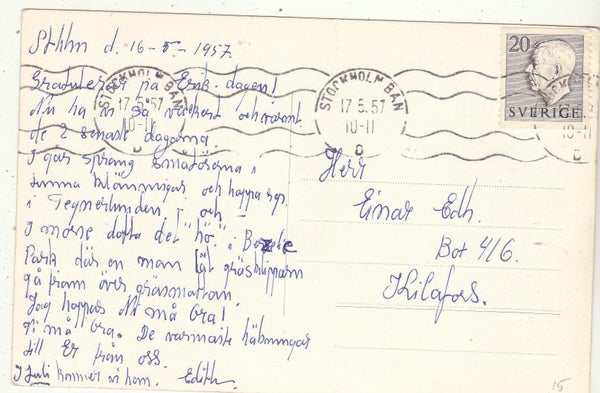 Sthlm d. 16-5-1957.
Gratulerar på Erik-dagen!
Nu ha vi så vackert och varmt
de 2 senaste dagarna.
I går sprang småtöserna i
tunna klänningar och hoppa rep
i Tegnerlunden, I och I
I morse dofta det "hö" i
Park där en man lät gräsklipparn
gå fram över gräsmattan.
Jag hoppas Ni må bra!
Vi må bra. De varmaste hälsningar
till Er från oss.
I Juli kommer vi hem. Edith.
STOCKHOLM BAN
17.5.57
10-11
D
STOCKHOLM BAN
17.5.57
10-11
D
20
SVERIGE
10-11
D
Herr
Einar Edh.
Box 416.
Kilafors.
15